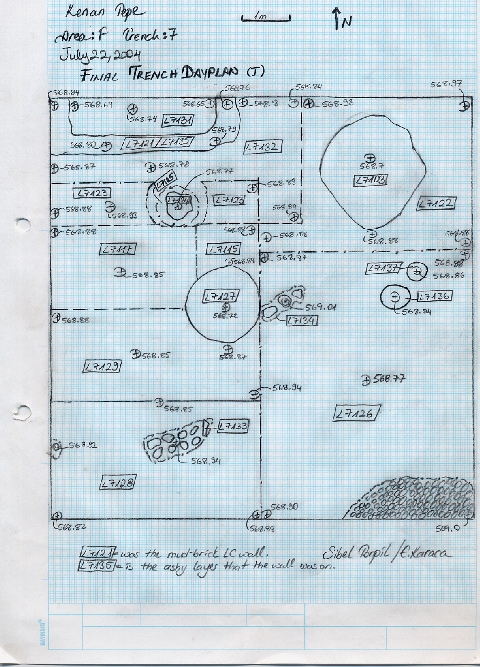 Kenan Pepe
1m
N
Area: F Trench: 7
July 22, 2004
FINAL TRENCH DAYPLAN (J)
568.84 568.76 568.84 568.97
568.65 568.98
568.74 L7131
568.79
568.80 L7121/L7135 L7132
568.7
568.87 568.78 568.77
L7123 568.89 L7122
568.88 568.93
568.88 568.86 568.88
L7115 568.97 L7137
568.85 568.86
L7127 569.01 L7136
568.72 L7134 568.94
568.88
568.85 568.87
L7129 568.94 568.77
568.85 L7126
568.92 L7133
568.94
L7128
568.90
568.82 568.88 569.0
L7121 was the mud-brick LC wall.
L7135 is the ashy layer that the wall was on.